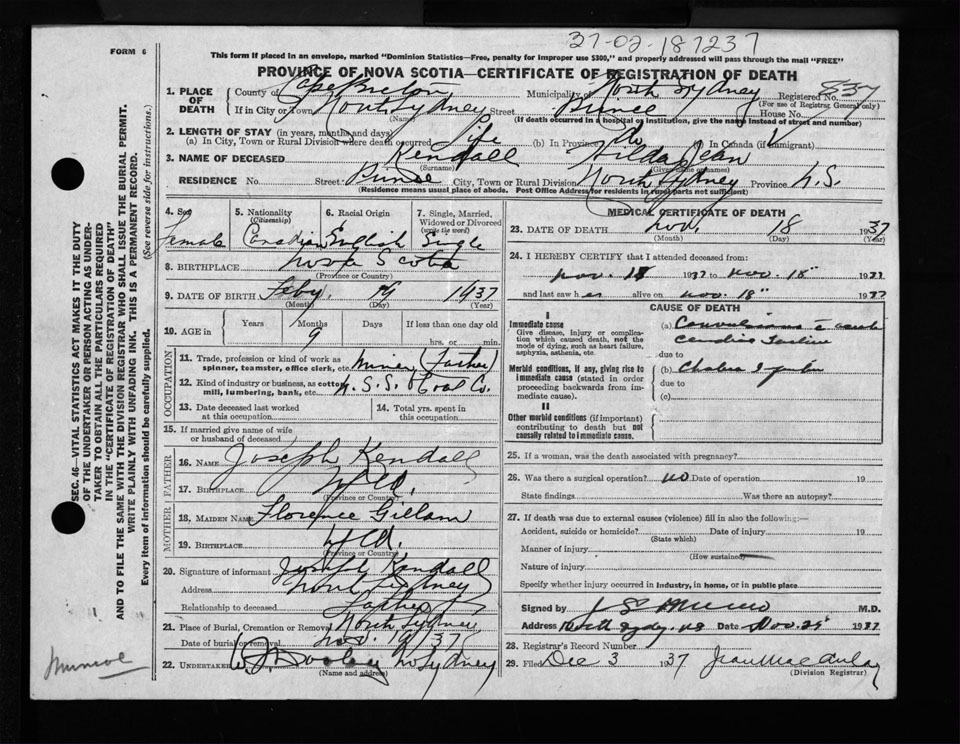 37-02-187237
FORM 6
This form if placed in an envelope, marked "Dominion Statistics—Free, penalty for improper use $300," and properly addressed will pass through the mail "FREE"
PROVINCE OF NOVA SCOTIA—CERTIFICATE OF REGISTRATION OF DEATH
1. PLACE OF DEATH County of Cape Breton Municipality of North Sydney Registered No. 837
(For use of Registrar General only)
If in City or Town North Sydney Street House No.
(Name) (If death occurred in a hospital or institution, give the name instead of street and number)
2. LENGTH OF STAY (in years, months and days)
(a) In City, Town or Rural Division where death occurred Life (b) In Province do (c) In Canada (if immigrant)
3. NAME OF DECEASED Kendall Hilda Jean
(Surname) (Given name or names)
RESIDENCE No. Street City, Town or Rural Division North Sydney Province N.S.
(Residence means usual place of abode. Post Office Address for residents in rural parts not sufficient)
4. Sex Female
5. Nationality (Citizenship) Canadian
6. Racial Origin English
7. Single, Married, Widowed or Divorced (write the word) Single
8. BIRTHPLACE Nova Scotia
(Province or Country)
9. DATE OF BIRTH Feby. 1937
(Month) (Day) (Year)
10. AGE in Years Months 9 Days If less than one day old
hrs. or min.
OCCUPATION
11. Trade, profession or kind of work as spinner, teamster, office clerk, etc. Miner (Father)
12. Kind of industry or business, as cotton mill, lumbering, bank, etc. N.S.S. & Coal Co.
13. Date deceased last worked at this occupation
14. Total yrs. spent in this occupation
15. If married give name of wife or husband of deceased
FATHER
16. NAME Joseph Kendall
17. BIRTHPLACE Nfld.
(Province or Country)
MOTHER
18. MAIDEN NAME Florence Gillam
19. BIRTHPLACE Nfld.
(Province or Country)
20. Signature of informant Joseph Kendall
Address North Sydney
Relationship to deceased Father
21. Place of Burial, Cremation or Removal North Sydney
Date of burial or removal Nov. 19/37
22. UNDERTAKER No Sydney
(Name and address)
MEDICAL CERTIFICATE OF DEATH
23. DATE OF DEATH Nov. 18 1937
(Month) (Day) (Year)
24. I HEREBY CERTIFY that I attended deceased from:
Nov. 18 1937 to Nov. 18" 1937
and last saw her alive on Nov. 18" 1937
CAUSE OF DEATH
I
Immediate cause
Give disease, injury or complication which caused death, not the mode of dying, such as heart failure, asphyxia, asthenia, etc.
(a) Convulsions
due to
Morbid conditions, if any, giving rise to immediate cause (stated in order proceeding backwards from immediate cause).
(b) Cholera
due to
(c)
II
Other morbid conditions (if important) contributing to death but not causally related to immediate cause.
25. If a woman, was the death associated with pregnancy?
26. Was there a surgical operation? no Date of operation 19
State findings Was there an autopsy?
27. If death was due to external causes (violence) fill in also the following:—
Accident, suicide or homicide? Date of injury 19
(State which)
Manner of injury
(How sustained)
Nature of injury
Specify whether injury occurred in industry, in home, or in public place
Signed by M.D.
Address North Sydney NS Date Nov. 1937
28. Registrar's Record Number
29. Filed Dec 3 1937 Jean MacAulay
(Division Registrar)
SEC. 46—VITAL STATISTICS ACT MAKES IT THE DUTY
OF THE UNDERTAKER OR PERSON ACTING AS UNDER-
TAKER TO OBTAIN ALL THE PARTICULARS REQUIRED
IN THE "CERTIFICATE OF REGISTRATION OF DEATH"
AND TO FILE THE SAME WITH THE DIVISION REGISTRAR WHO SHALL ISSUE THE BURIAL PERMIT.
(See reverse side for instructions.)
WRITE PLAINLY WITH UNFADING INK. THIS IS A PERMANENT RECORD.
Every item of information should be carefully supplied.
Munroe